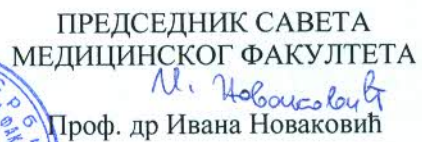 ПРЕДСЕДНИК САВЕТА
МЕДИЦИНСКОГ ФАКУЛТЕТА
И. Новаковић
Проф. др Ивана Новаковић